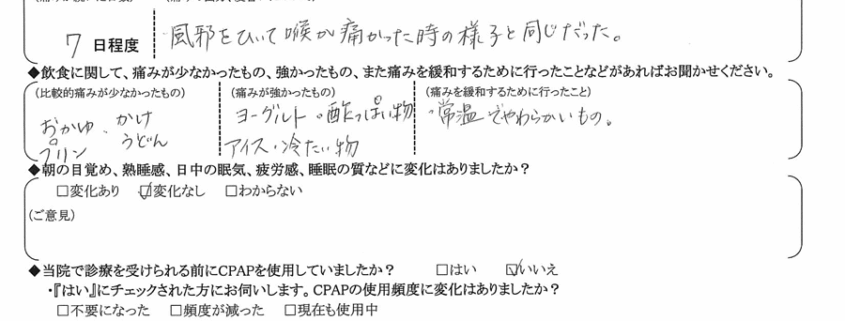 7 日程度 風邪をひいて喉が痛かった時の様子と同じだった。
◆飲食に関して、痛みが少なかったもの、強かったもの、また痛みを緩和するために行ったことなどがあればお聞かせください。
(比較的痛みが少なかったもの) (痛みが強かったもの) (痛みを緩和するために行ったこと)
おかゆ、かけうどん ヨーグルト・酢っぱい物 ・常温でやわらかいもの。
プリン アイス・冷たい物
◆朝の目覚め、熟睡感、日中の眠気、疲労感、睡眠の質などに変化はありましたか?
□変化あり ☑変化なし □わからない
(ご意見)
◆当院で診療を受けられる前にCPAPを使用していましたか? □はい ☑いいえ
・『はい』にチェックされた方にお伺いします。CPAPの使用頻度に変化はありましたか?
□不要になった □頻度が減った □現在も使用中